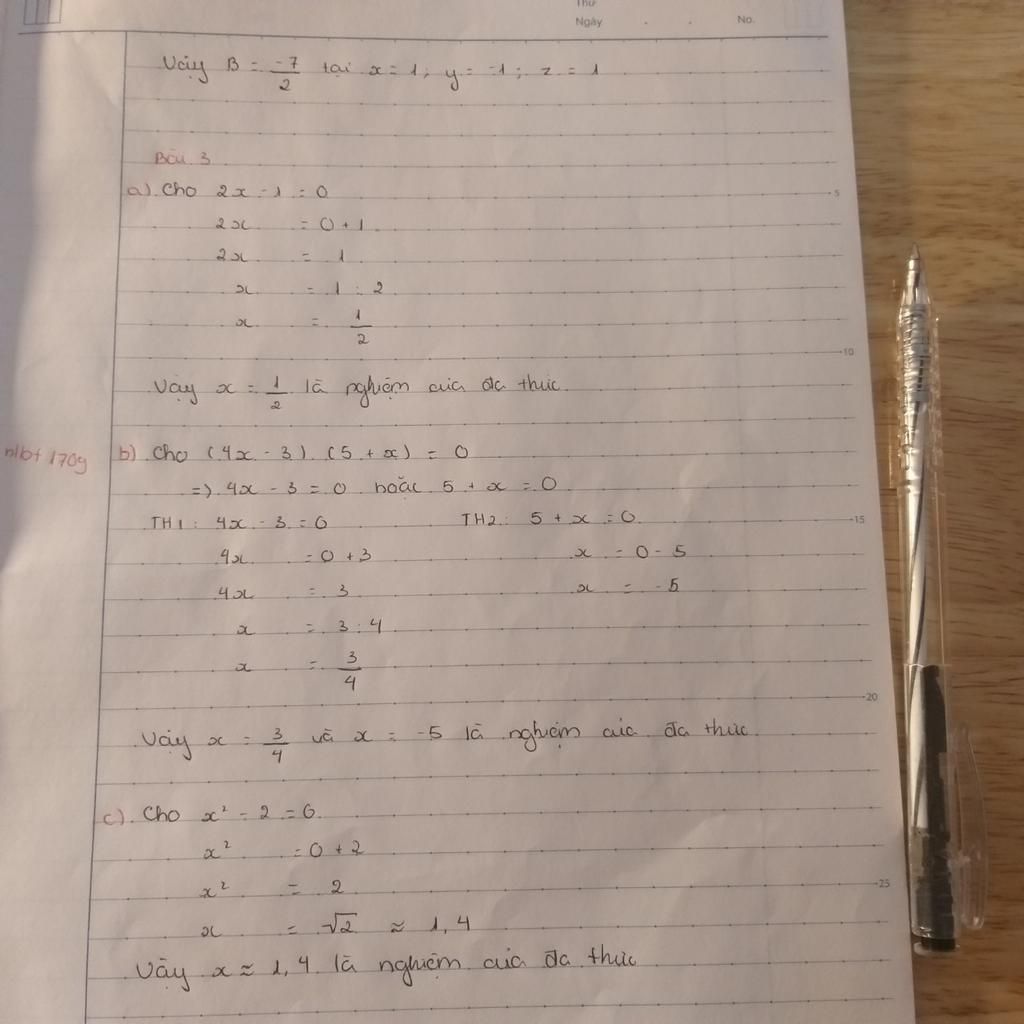 Thứ
Ngày . . No.
Vậy B = -7/2 tại x = 1; y = -1; z = 1
Bài 3
a) Cho 2x - 1 = 0
5
2x = 0 + 1
2x = 1
x = 1 : 2
x = 1/2
10
Vậy x = 1/2 là nghiệm của đa thức
nlbt 170g
b) Cho (4x - 3). (5 + x) = 0
=> 4x - 3 = 0 hoặc 5 + x = 0
TH1: 4x - 3 = 0 TH2: 5 + x = 0
15
4x = 0 + 3 x = 0 - 5
4x = 3 x = -5
x = 3 : 4
x = 3/4
20
Vậy x = 3/4 và x = -5 là nghiệm của đa thức
c) Cho x² - 2 = 0
x² = 0 + 2
x² = 2
25
x = √2 ≈ 1,4
Vậy x ≈ 1,4 là nghiệm của đa thức